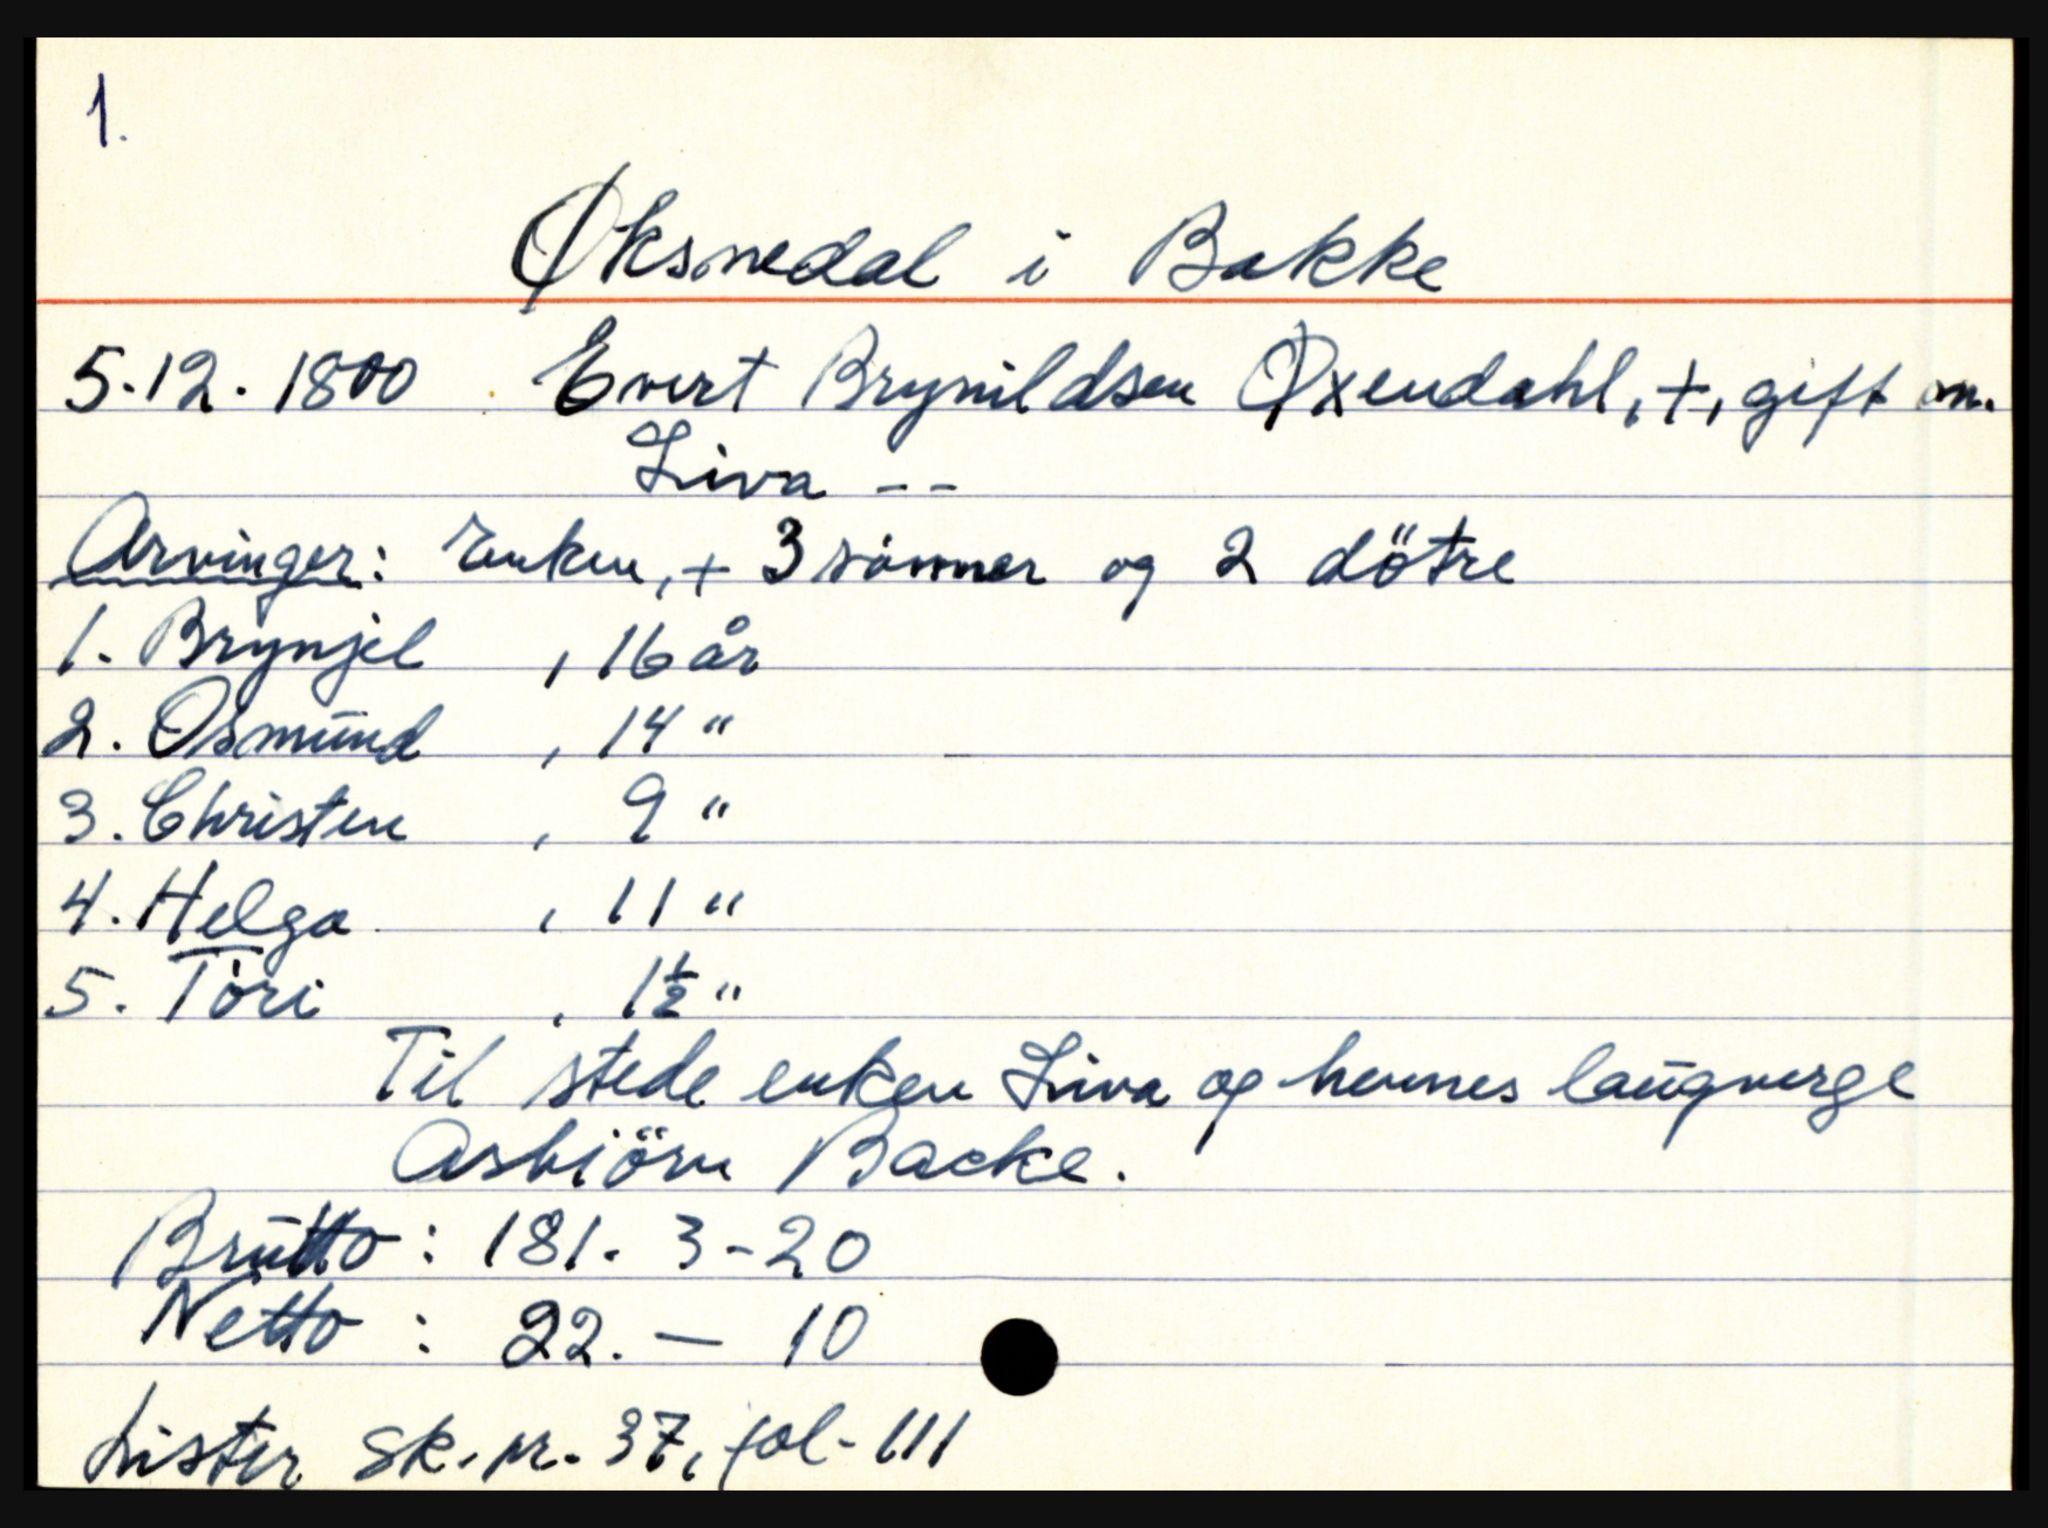 1.
Øksnedal i Bakke
5.12.1800. Evert Brynildsen Øxendahl, +, gift m.
Liva --
Arvinger: Enken, + 3 sønner og 2 dötre
1. Brynjel , 16 år
2. Osmund , 14 "
3. Christen , 9 "
4. Helga , 11 "
5. Töri , 1½ "
Til stede enken Liva og hennes laugverge
Asbiörn Backe.
Brutto : 181. 3-20
Netto : 22. — 10
Lister sk. pr. 37, fol- 111